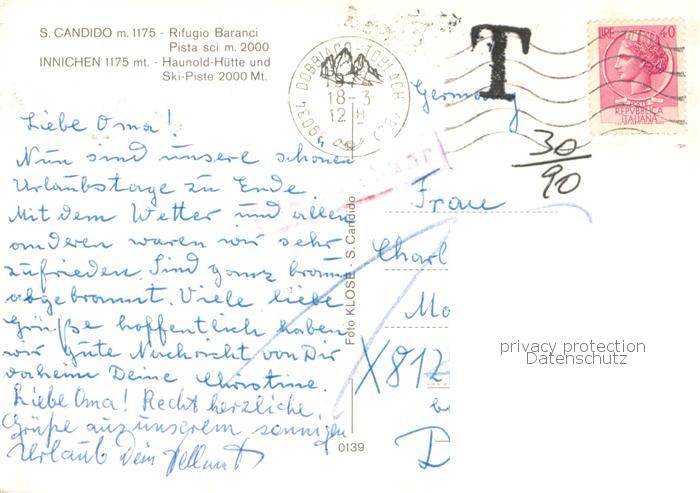 S. CANDIDO m. 1175 - Rifugio Baranci
Pista sci m. 2000
INNICHEN 1175 mt. - Haunold-Hütte und
Ski-Piste 2000 Mt.
39034 DOBBIACO - TOBLACH (BZ)
18-3
12
T
LIRE 40
REPVBBLICA
ITALIANA
30/90
Liebe Oma!
Nun sind unsere schönen
Urlaubstage zu Ende
Mit dem Wetter und allem
anderen waren wir sehr
zufrieden. Sind ganz braun
abgebrannt. Viele liebe
Grüße hoffentlich haben
wir gute Nachricht von Dir
daheim Deine Christine.
Liebe Oma! Recht herzliche
Grüße aus unserem sonnigen
Urlaub Dein Hellmut
Foto KLOSE - S. Candido
0139
Germany
Frau
Charl
Mo
X812
b
D
privacy protection
Datenschutz